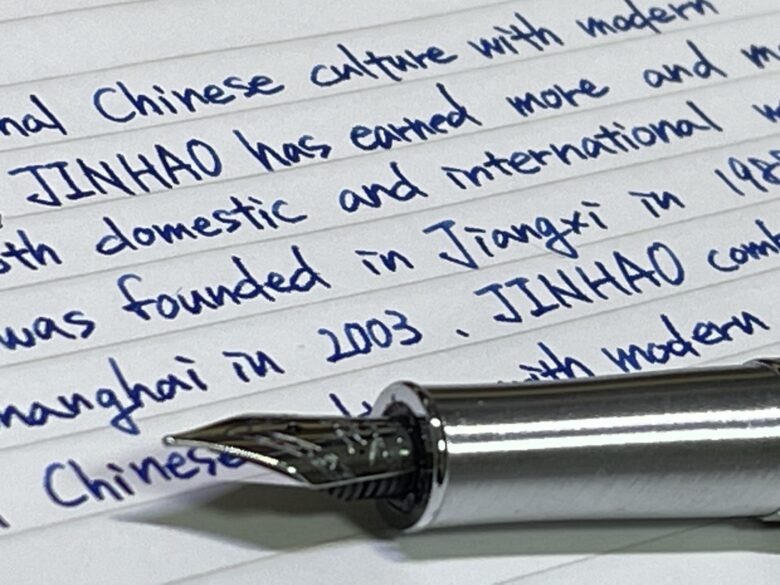 nal Chinese culture with modern
JINHAO has earned more and m
oth domestic and international
was founded in Jiangxi in 198
hanghai in 2003. JINHAO comb
with modern
Chinese